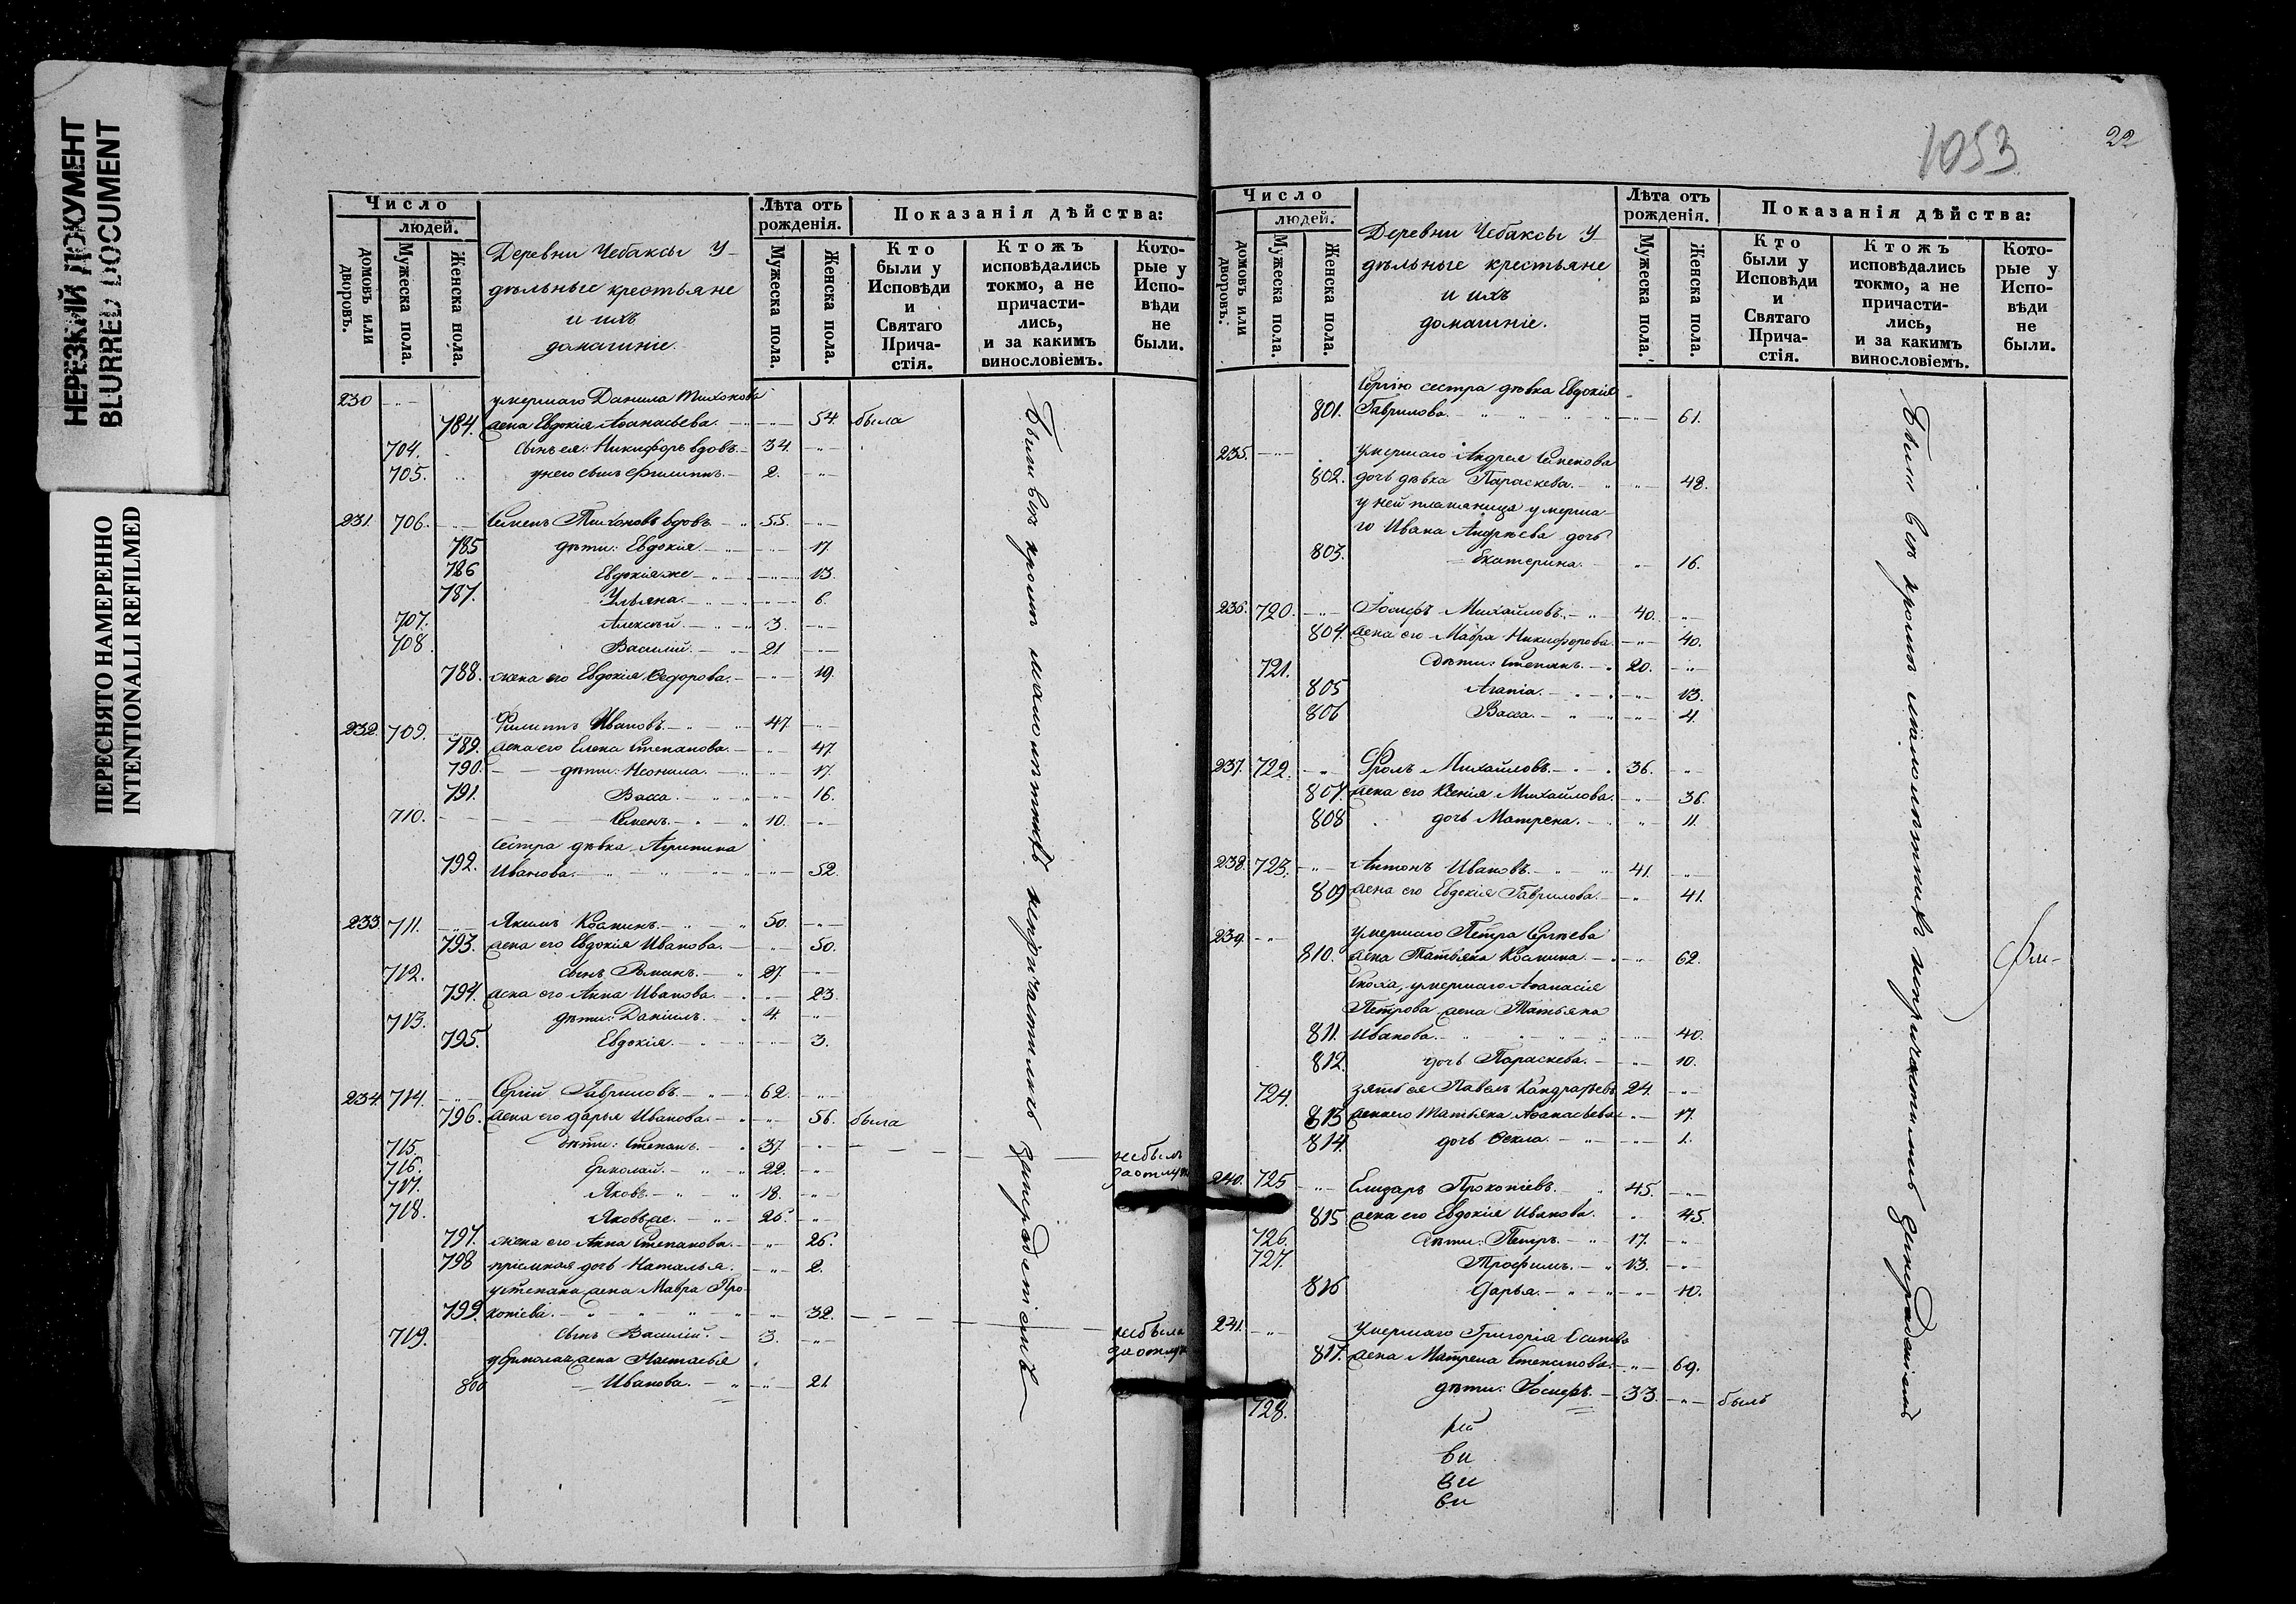 НЕРЕЗКИЙ ДОКУМЕНТ
BLURRED DOCUMENT
ПЕРЕСНЯТО НАМЕРЕННО
INTENTIONALLI REFILMED
Число
людей.
домовъ или дворовъ.
Мужеска пола.
Женска пола.
Деревни Чебаксы У-
дѣльные крестьяне
и ихъ
домашніе.
Лѣта отъ рожденія.
Мужеска пола.
Женска пола.
Показанія дѣйства:
Кто были у Исповѣди и Святаго Прича-стія.
Ктожъ исповѣдались токмо, а не причасти-лись, и за какимъ винословіемъ.
Кото-рые у Испо-вѣди не были.
230 умершаго Данила Тихонова
784. жена Евдокія Аѳанасьева. 54. была
704. сынъ ея: Никифоръ вдовъ. 34.
705. у него сынъ Филиппъ. 2.
231. 706. Семенъ Тихоновъ вдовъ 55.
785 дѣти: Евдокия. 17.
786 Евдокія же 13.
787. Ульяна. 6.
707. Алексѣй. 3.
708. Василій. 21.
788. жена его Евдокія Ѳедорова. 19.
232. 709. Филиппъ Ивановъ. 47.
789. жена его Елена Степанова. 47.
790. дѣти: Неонила. 17.
791. Васса. 16.
710. Семенъ. 10.
сестра дѣвка Агрипина
792. Иванова. 52.
233. 711. Якимъ Козминъ. 50.
793. жена его Евдокія Иванова. 50.
712. сынъ Романъ. 27.
794. жена его Анна Иванова. 23.
713. дѣти: Даніилъ. 4.
795. Евдокія. 3.
234. 714. Сергій Гавриловъ. 62.
796. жена его Дарья Иванова. 56. была
715. дѣти: Степанъ. 37. небылъ
716. Ермолай. 22. за отлуч
717. Яковъ. 18.
718. Яковъ же. 26.
797. жена его Анна Степанова. 26.
798 пріемная дочь Наталья. 2.
у Степана жена Мавра Про-
799. копіева. 32. небыла
719. сынъ Василій. 3. за отлуч
у Ермолая жена Настасья
800 Иванова. 21.
Были всѣ кромѣ малолѣтнихъ непричастились
1053
22
Число
людей.
домовъ или дворовъ.
Мужеска пола.
Женска пола.
Деревни Чебаксы У-
дѣльные крестьяне
и ихъ
домашніе.
Лѣта отъ рожденія.
Мужеска пола.
Женска пола.
Показанія дѣйства:
Кто были у Исповѣди и Святаго Прича-стія.
Ктожъ исповѣдались токмо, а не причасти-лись, и за какимъ винословіемъ.
Кото-рые у Испо-вѣди не были.
Сергію сестра дѣвка Евдокія
801. Гаврилова. 61.
235. умершаго Андрея Семенова
802. дочь дѣвка Параскева. 48.
у ней племяница умерша-
го Ивана Андрѣева дочь
803. Екатерина. 16.
236. 720. Іосифъ Михайловъ. 40.
804. жена его Мавра Никифорова. 40.
721. дѣти: Степанъ. 20.
805 Агапіа. 13.
806 Васса. 4.
237. 722. Фролъ Михайловъ. 36.
807. жена его Ксенія Михайлова. 36.
808 дочь Матрена. 11.
238. 723. Антонъ Ивановъ. 41.
809 жена его Евдокія Гаврилова. 41.
239. умершаго Петра Сергѣева
810. жена Татьяна Козмина. 62.
сноха, умершаго Аѳанасія
Петрова жена Татьяна
811. Иванова. 40.
812. дочь Параскева. 10.
724. зять ея Павелъ Кандратьевъ 24.
813 жена его Татьяна Аѳанасьева 17.
814. дочь Ѳекла. 1.
240. 725 Елизаръ Прокопіевъ. 45.
815 жена его Евдокія Иванова. 45.
726. дѣти: Петръ. 17.
727. Трофимъ. 13.
816 Дарья. 10.
241. умершаго Григорія Есипова
817. жена Матрена Степанова. 69.
728. дѣти: Іосифъ. 33. былъ
рій
ви
ви
ви
Были всѣ кромѣ малолѣтнихъ непричастились